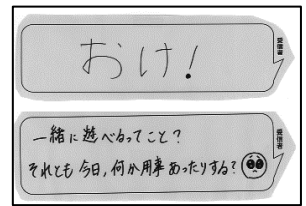 おけ！
受信者
一緒に遊べるってこと？
それとも今日、何か用事あったりする？
受信者